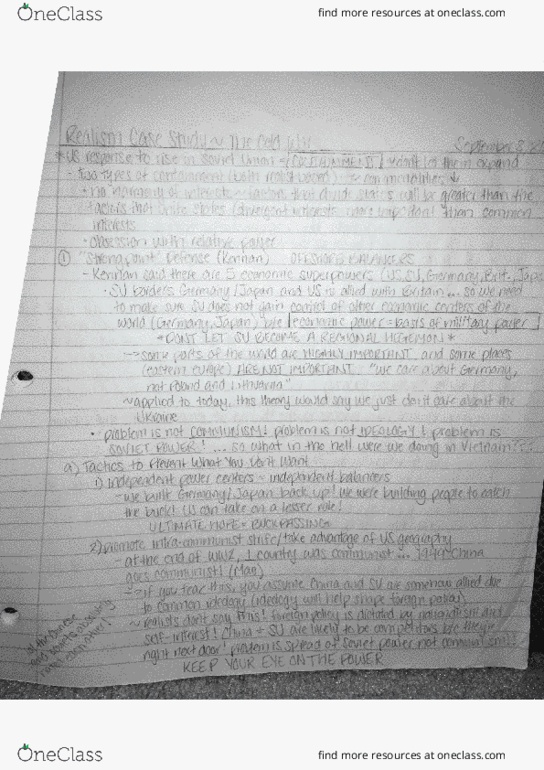 OneClass
find more resources at oneclass.com
Realism Case Study ~ The Cold War
September 8, 20
*US response to rise in Soviet Union = CONTAINMENT! don't let them expand
- two types of containment (both realist based) ~ commonalities ↓
• no harmony of interests ~ factors that divide states will be greater than the
factors that unite states (divergent interests more imp. than common
interests
• obsession with relative power
① "Strong point" Defense (Kennan) OFFSHORE BALANCERS
- Kennan said there are 5 economic superpowers (US, SU, Germany, Brit., Japan
• SU borders Germany/Japan and US is allied with Britain... so we need
to make sure SU does not gain control of other economic centers of the
world (Germany, Japan) b/c economic power = basis of military power
*DON'T LET SU BECOME A REGIONAL HEGEMON*
→ some parts of the world are HIGHLY IMPORTANT, and some places
(eastern europe) ARE NOT IMPORTANT. "we care about Germany,
not Poland and Lithuania"
~ applied to today, this theory would say we just don't care about the
Ukraine
• problem is not COMMUNISM! problem is not IDEOLOGY! problem is
SOVIET POWER! ... so what in the hell were we doing in Vietnam???
a) Tactics to Prevent What You Don't Want
1) Independent power centers - independent balancers
- we built Germany/Japan back up! we were building people to catch
the buck! US can take on a lesser role!
ULTIMATE HOPE = BUCKPASSING
2) promote intra-communist strife/take advantage of US geography
- at the end of WW2, 1 country was communist... 1949 China
goes communist! (Mao)
→ if you fear this, you assume China and SU are somehow allied due
to common ideology (ideology will help shape foreign policy)
~ realists don't say this! foreign policy is dictated by nationalism and
self-interest! China + SU are likely to be competitors b/c they're
right next door! problem is spread of Soviet power not communism!
KEEP YOUR EYE ON THE POWER
the Chinese
and Soviets
each other!
OneClass
find more resources at oneclass.com